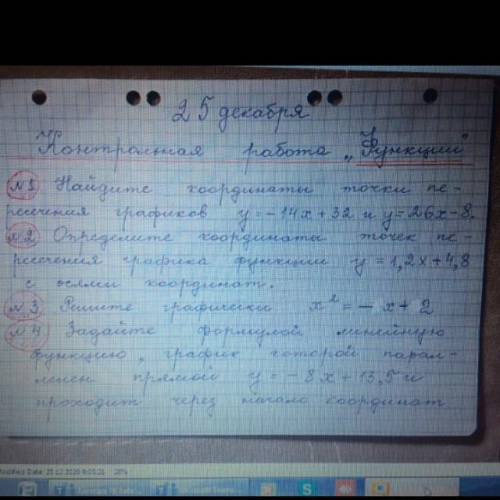 25 декабря
Контрольная работа „Функции"
№1 Найдите координаты точки пе-
ресечения графиков y = -14x + 32 и y = 26x - 8.
№2 Определите координаты точек пе
ресечения графика функции y = 1,2x + 4,8
с осями координат.
№3 Решите графически x² = - x + 2
№4 Задайте формулой линейную
функцию, график которой парал-
лелен прямой y = - 8x + 13,5 и
проходит через начало координат